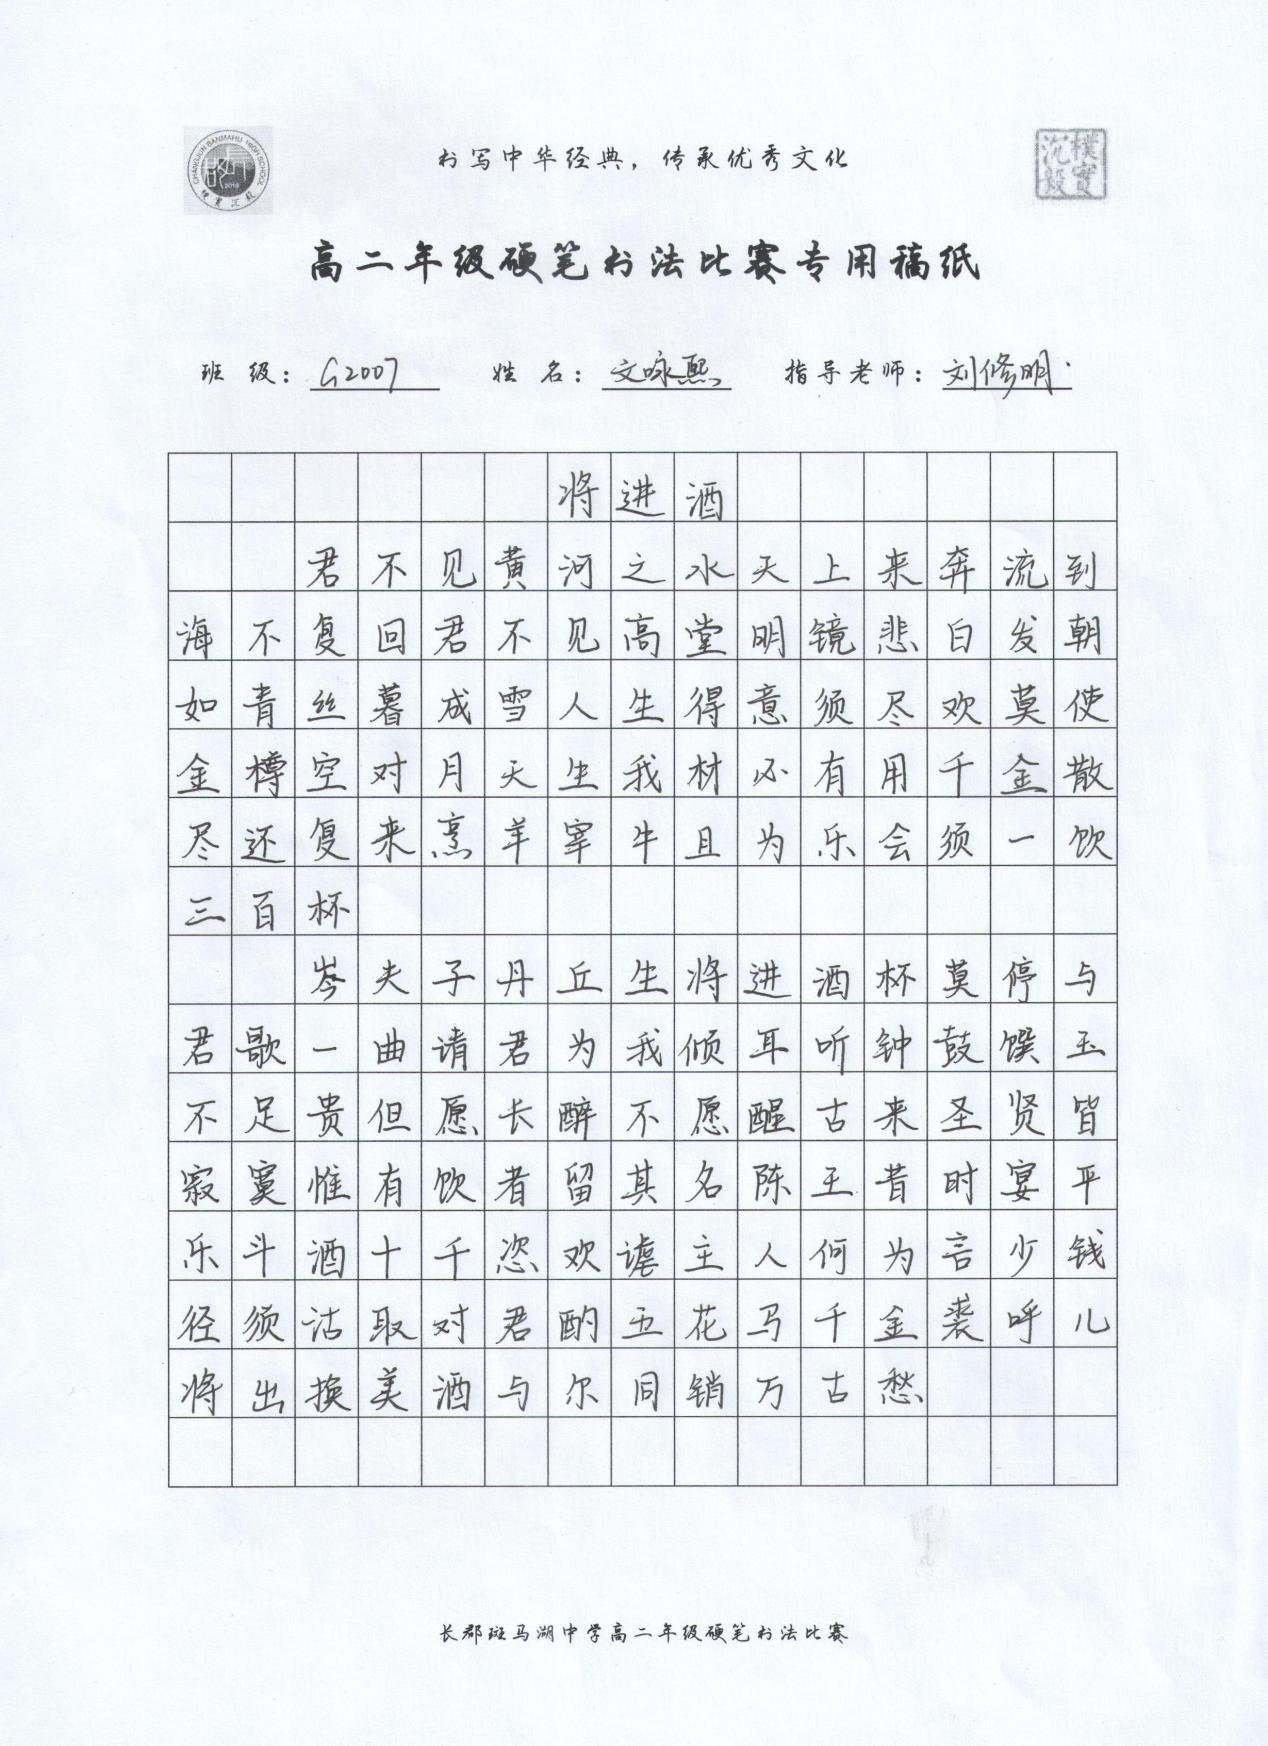 CHANGJUN BANMAHU HIGH SCHOOL
2018
朴实沉毅
书写中华经典，传承优秀文化
朴实沉毅
高二年级硬笔书法比赛专用稿纸
班级：G2007 姓名：文咏熙 指导老师：刘修明
将进酒
君不见黄河之水天上来奔流到
海不复回君不见高堂明镜悲白发朝
如青丝暮成雪人生得意须尽欢莫使
金樽空对月天生我材必有用千金散
尽还复来烹羊宰牛且为乐会须一饮
三百杯
岑夫子丹丘生将进酒杯莫停与
君歌一曲请君为我倾耳听钟鼓馔玉
不足贵但愿长醉不愿醒古来圣贤皆
寂寞惟有饮者留其名陈王昔时宴平
乐斗酒十千恣欢谑主人何为言少钱
径须沽取对君酌五花马千金裘呼儿
将出换美酒与尔同销万古愁
长郡斑马湖中学高二年级硬笔书法比赛